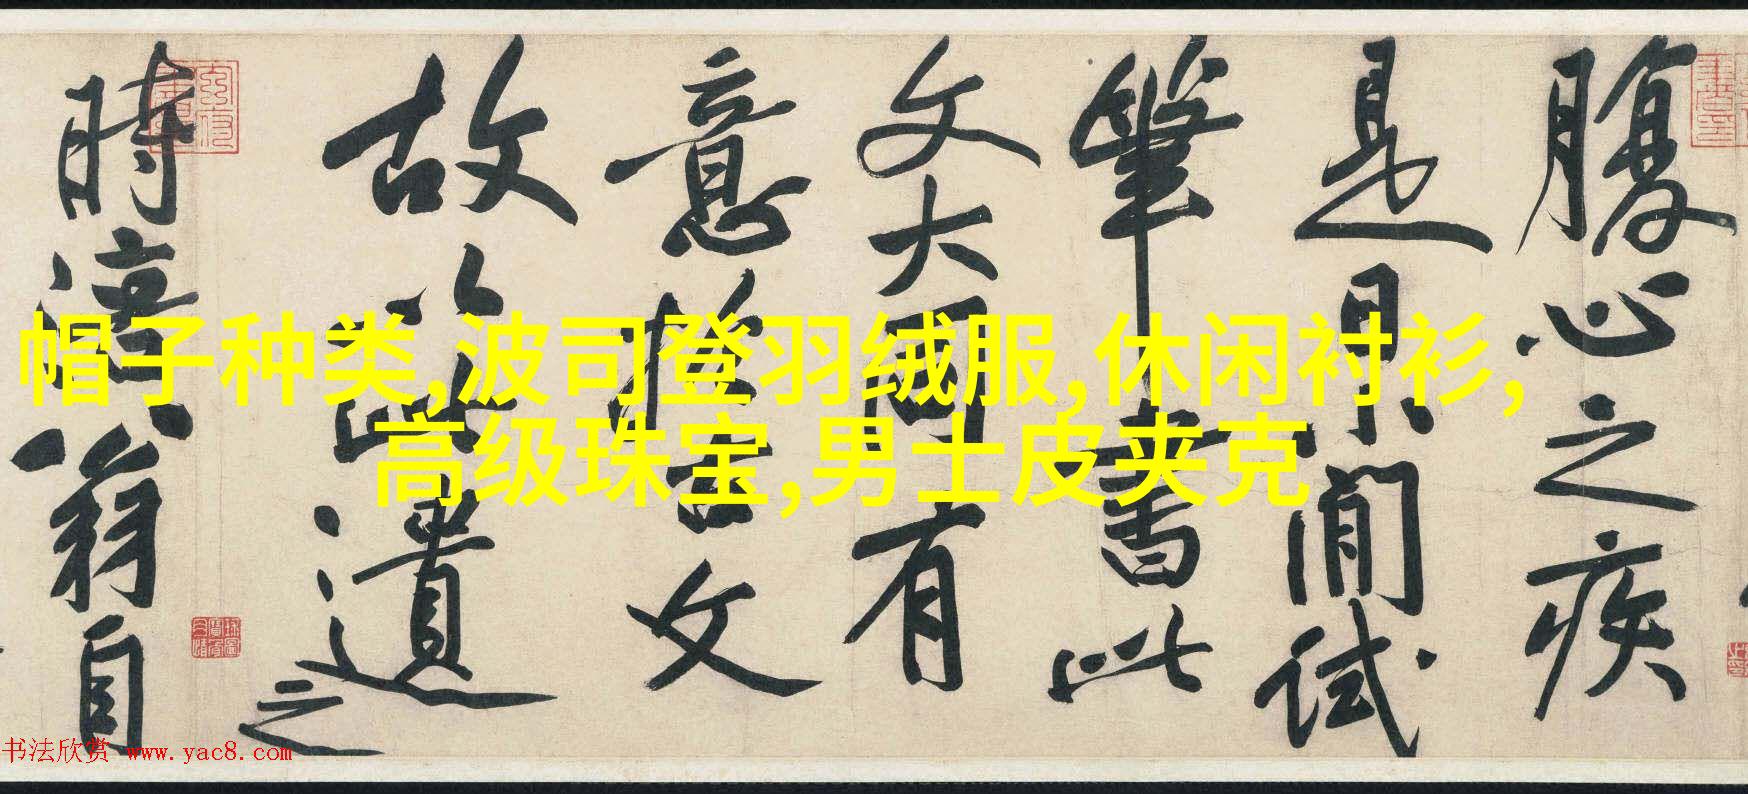 帽子种类,波司登羽绒服,休闲衬衫,
高级珠宝,男士皮夹克
腹心之疾
是日小閒試
筆書此
文大有
意於古文
故遺之
時涪翁自
书法欣赏 www.yac8.com